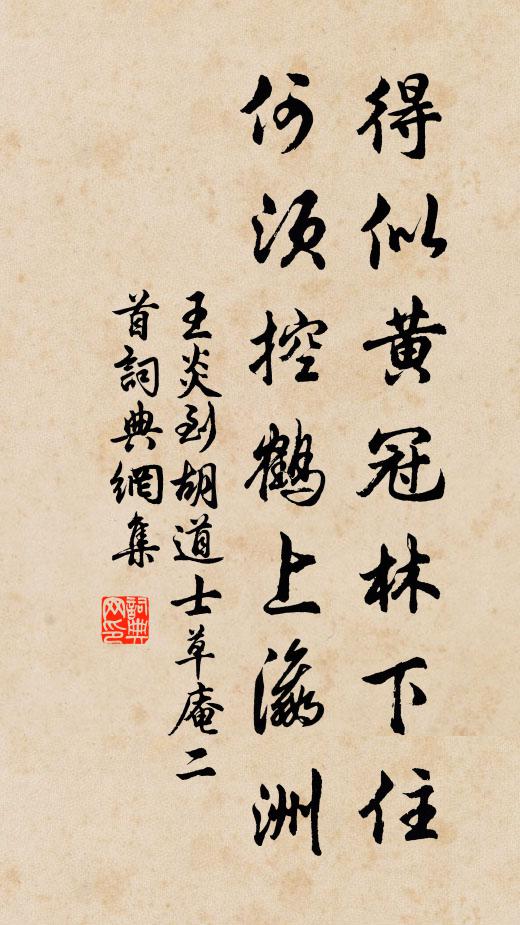 得似黄冠林下住
何须控鹤上瀛洲
王炎到胡道士草庵二
首詞典網集
詞典
网印